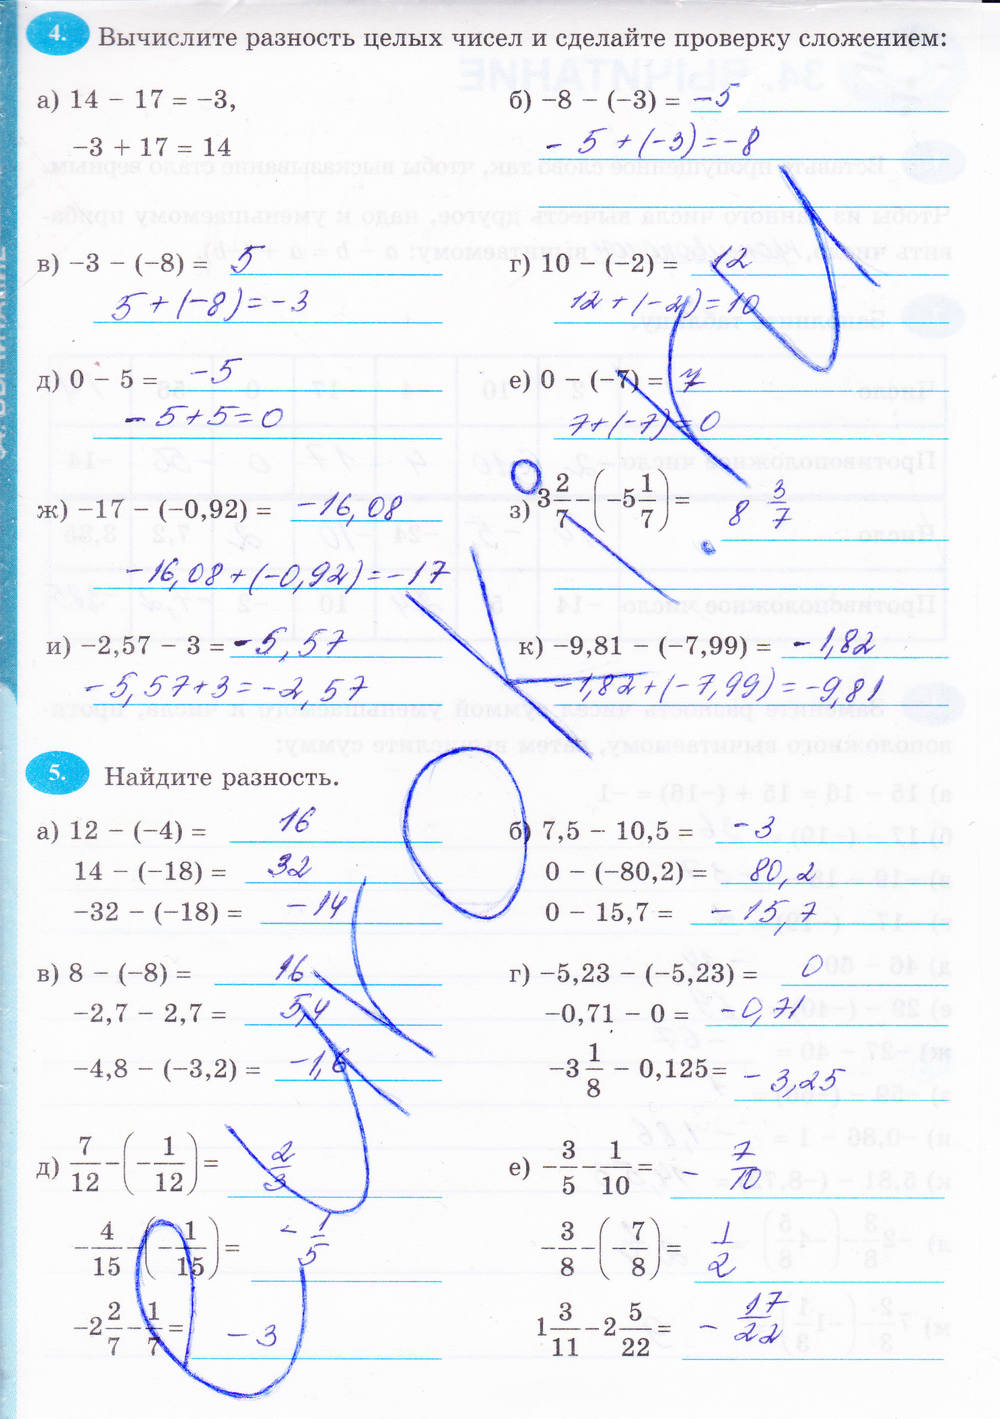 4. Вычислите разность целых чисел и сделайте проверку сложением:
а) 14 − 17 = −3,
−3 + 17 = 14
б) −8 − (−3) = −5
− 5 + (−3) = −8
в) −3 − (−8) = 5
5 + (−8) = −3
г) 10 − (−2) = 12
12 + (−2) = 10
д) 0 − 5 = −5
− 5 + 5 = 0
е) 0 − (−7) = 7
7 + (−7) = 0
ж) −17 − (−0,92) = −16,08
−16,08 + (−0,92) = −17
з) 3 2/7 − (−5 1/7) = 8 3/7
и) −2,57 − 3 = −5,57
−5,57 + 3 = −2,57
к) −9,81 − (−7,99) = −1,82
−1,82 + (−7,99) = −9,81
5. Найдите разность.
а) 12 − (−4) = 16
14 − (−18) = 32
−32 − (−18) = −14
б) 7,5 − 10,5 = −3
0 − (−80,2) = 80,2
0 − 15,7 = −15,7
в) 8 − (−8) = 16
−2,7 − 2,7 = 5,4
−4,8 − (−3,2) = −1,6
г) −5,23 − (−5,23) = 0
−0,71 − 0 = −0,71
−3 1/8 − 0,125 = −3,25
д) 7/12 − (−1/12) = 2/3
−4/15 − (−1/15) = −1/5
−2 2/7 − 1/7 = −3
е) −3/5 − 1/10 = −7/10
−3/8 − (−7/8) = 1/2
1 3/11 − 2 5/22 = −17/22